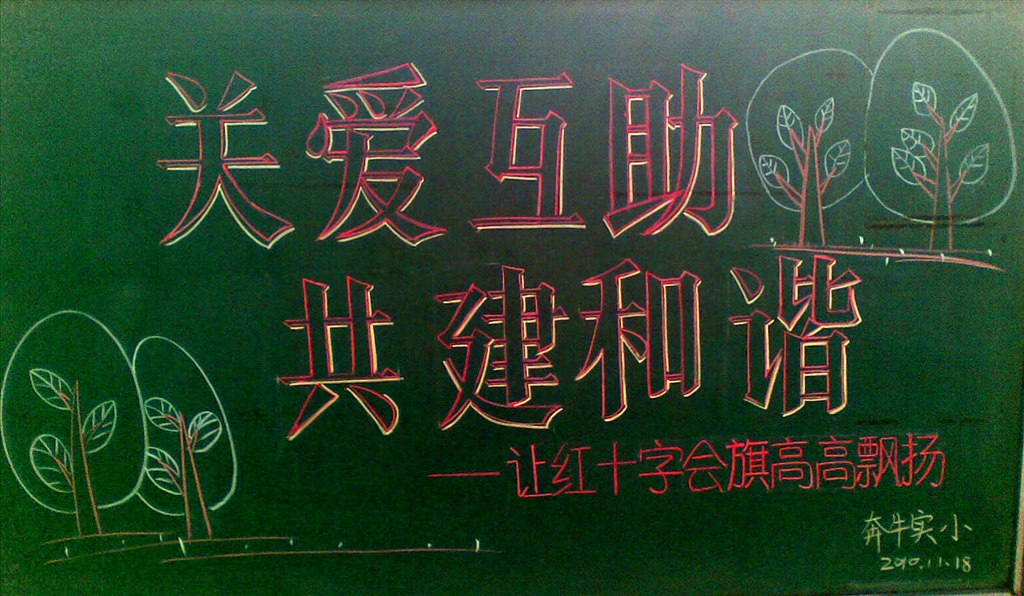 关爱互助
共建和谐
——让红十字会旗高高飘扬
奔牛实小
2010.11.18